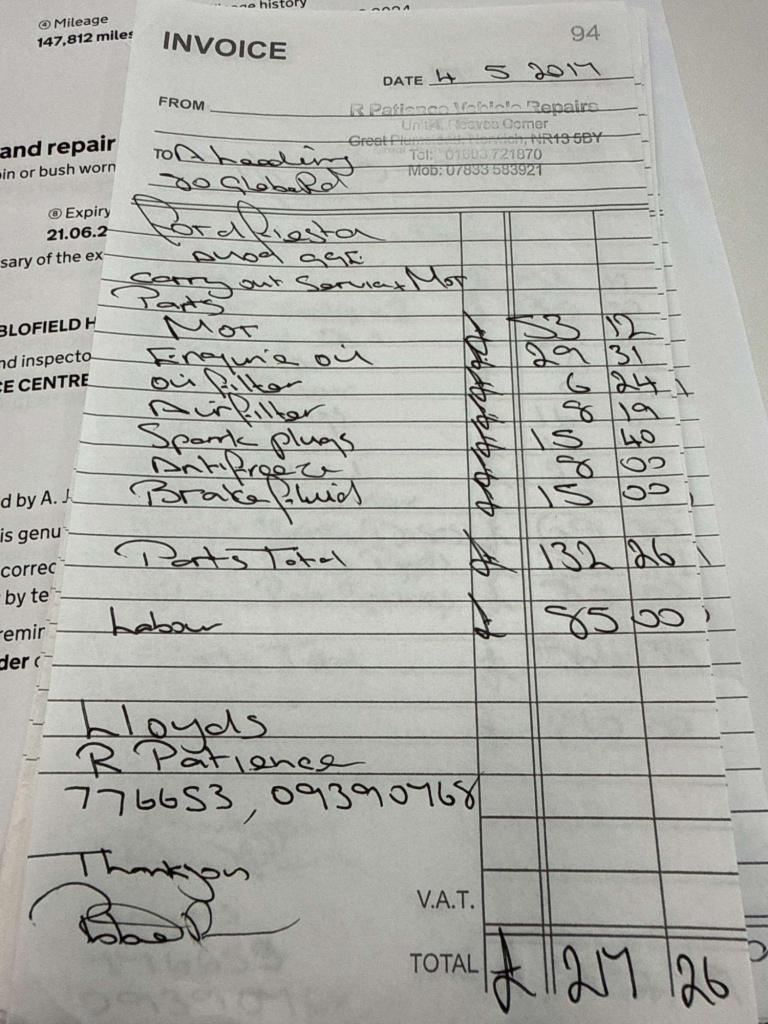 history
④ Mileage
147,812 miles
INVOICE
94
DATE 4 5 2017
FROM
R Patience Vehicle Repairs
Corner
NR13 5BY
Tel: 01603 721870
Mob: 07833 583921
TO A
Globe Rd
Ford Fiesta
carry out Service + Mot
Parts
Mot £ 53 12
Enguine oil £ 29 31
oil filter £ 6 24
Air filter £ 8 19
Spark plugs £ 15 40
Antifreeze £ 8 00
Brake fluid £ 15 00
Parts Total £ 132 26
Labour £ 85 00
Lloyds
R Patience
776653, 09390768
Thankyou
V.A.T.
TOTAL £ 217 26
and repair
in or bush worn
⑧ Expiry
21.06.2
sary of the ex
BLOFIELD H
nd inspecto
CE CENTRE
d by A. J
is genu
correc
by te
remin
der